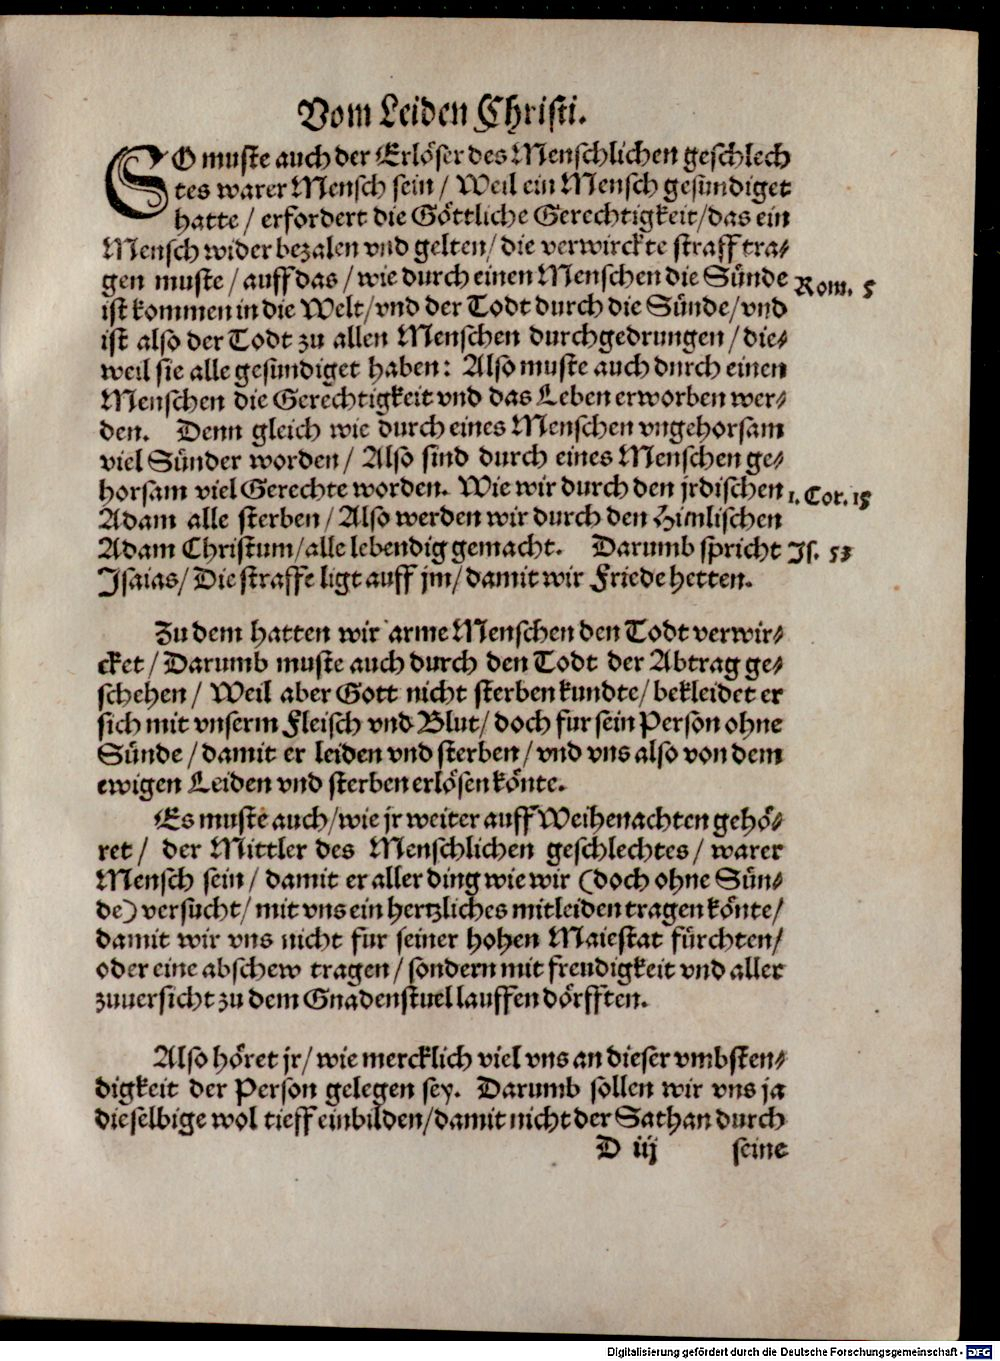 Vom Leiden Christi.
SO muste auch der Erlöser des Menschlichen geschlech
tes warer Mensch sein / Weil ein Mensch gesündiget
hatte / erfordert die Göttliche Gerechtigkeit / das ein
Mensch wider bezalen vnd gelten / die verwirckte straff tra⸗
gen muste / auff das / wie durch einen Menschen die Sünde Rom. 5
ist kommen in die Welt / vnd der Todt durch die Sünde / vnd
ist also der Todt zu allen Menschen durchgedrungen / die⸗
weil sie alle gesündiget haben: Also muste auch durch einen
Menschen die Gerechtigkeit vnd das Leben erworben wer⸗
den. Denn gleich wie durch eines Menschen vngehorsam
viel Sünder worden / Also sind durch eines Menschen ge⸗
horsam viel Gerechte worden. Wie wir durch den jrdischen 1. Cor. 15
Adam alle sterben / Also werden wir durch den Himlischen
Adam Christum / alle lebendig gemacht. Darumb spricht Js. 53
Jsaias / Die straffe ligt auff jm / damit wir Friede hetten.
Zu dem hatten wir arme Menschen den Todt verwir⸗
cket / Darumb muste auch durch den Todt der Abtrag ge⸗
schehen / Weil aber Gott nicht sterben kundte / bekleidet er
sich mit vnserm Fleisch vnd Blut / doch fur sein Person ohne
Sünde / damit er leiden vnd sterben / vnd vns also von dem
ewigen Leiden vnd sterben erlösen könte.
Es muste auch / wie jr weiter auff Weihenachten gehö⸗
ret / der Mittler des Menschlichen geschlechtes / warer
Mensch sein / damit er aller ding wie wir (doch ohne Sün⸗
de) versucht / mit vns ein hertzliches mitleiden tragen könte /
damit wir vns nicht fur seiner hohen Maiestat fürchten /
oder eine abschew tragen / sondern mit freudigkeit vnd aller
zuuersicht zu dem Gnadenstuel lauffen dörfften.
Also höret jr / wie mercklich viel vns an dieser vmbsten⸗
digkeit der Person gelegen sey. Darumb sollen wir vns ja
dieselbige wol tieff einbilden / damit nicht der Sathan durch
D iij seine
Digitalisierung gefördert durch die Deutsche Forschungsgemeinschaft - DFG